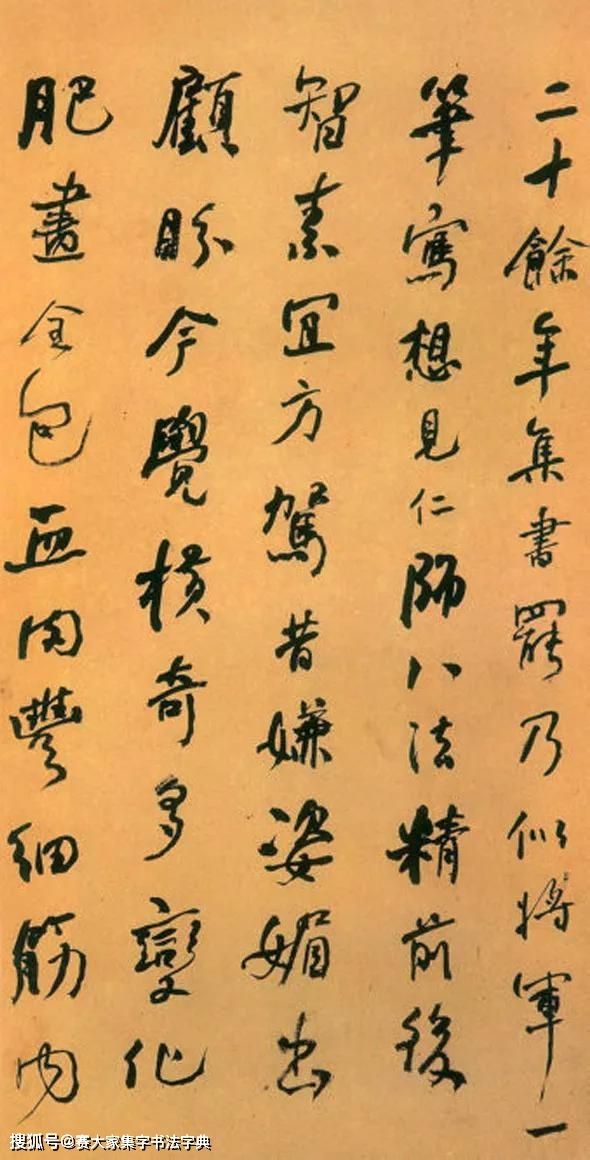 二十餘年集書罷乃似將軍一
筆寫想見仁師八法精前後
智素宜方駕昔嫌姿媚出
顧盼今覺橫奇多變化
肥畫全包血肉豐細筋內
搜狐号@赛大家集字书法字典